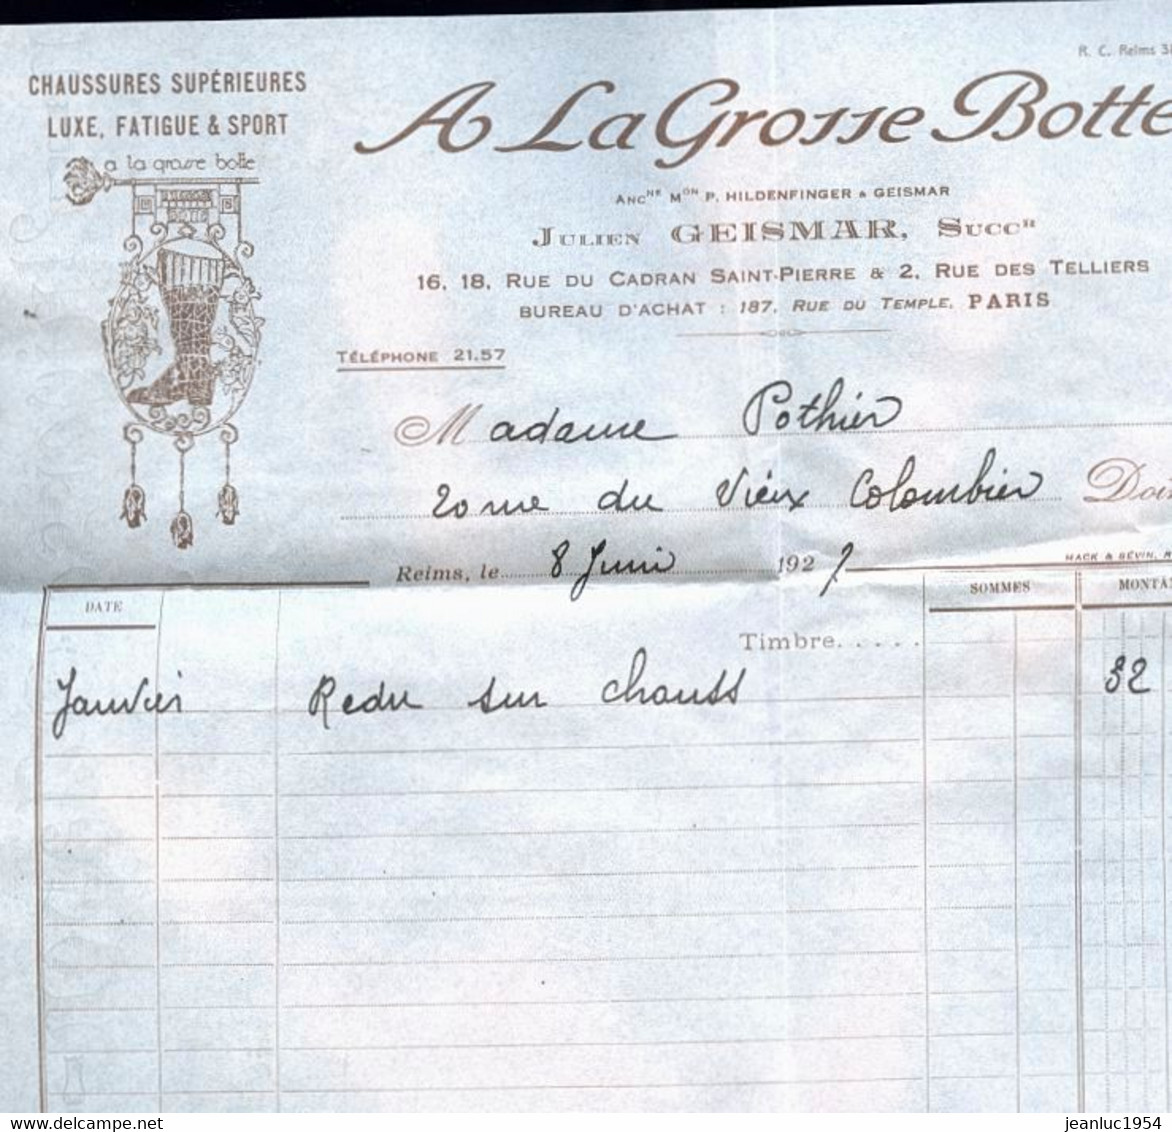 R. C. Reims
CHAUSSURES SUPÉRIEURES
LUXE, FATIGUE & SPORT
a la grosse botte
A La Grosse Botte
ANCNE MON P. HILDENFINGER & GEISMAR
JULIEN GEISMAR, SUCCR
16, 18, RUE DU CADRAN SAINT-PIERRE & 2, RUE DES TELLIERS
BUREAU D'ACHAT : 187, RUE DU TEMPLE, PARIS
TÉLÉPHONE 21.57
Madame Pothier
20 rue du Vieux Colombier Doi
Reims, le 8 Juin 1927
HACK & BÉVIN, R
DATE SOMMES MONTAN
Timbre.....
Janvier Redu sur chauss 32
delcampe.net jeanluc1954